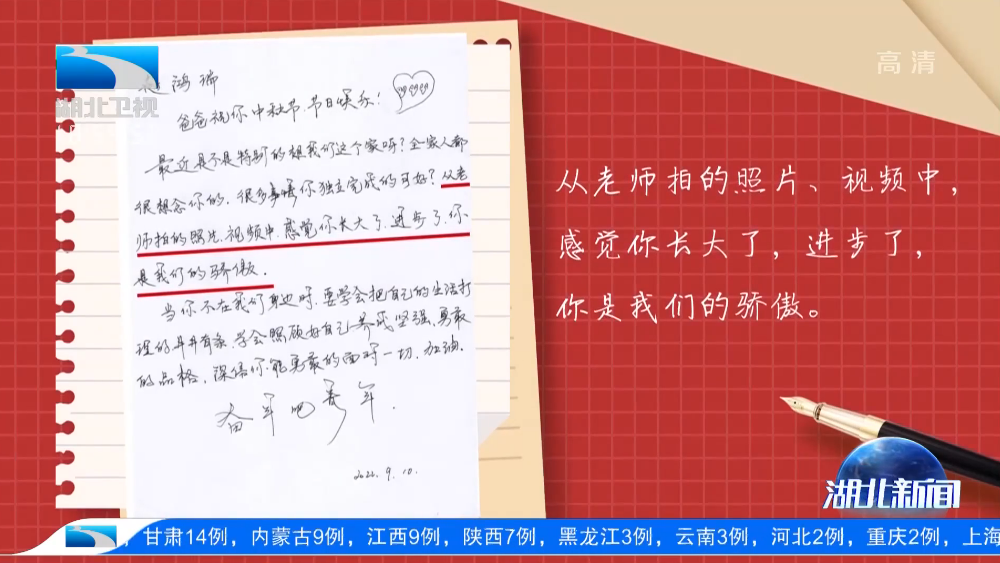 湖北卫视
高清
鸿瑞
爸爸祝你中秋节、节日快乐!
最近是不是特别的想我们这个家呀?全家人都
很想念你的。很多事情你独立完成的可好?从老
师拍的照片、视频中,感觉你长大了,进步了,你
是我们的骄傲。
当你不在我们身边时,要学会把自己的生活打
理的井井有条,学会照顾好自己,养成坚强、勇敢
的品格。深信你能勇敢的面对一切,加油。
奋斗吧青年.
2022.9.10.
从老师拍的照片、视频中,
感觉你长大了,进步了,
你是我们的骄傲。
湖北新闻
,甘肃14例,内蒙古9例,江西9例,陕西7例,黑龙江3例,云南3例,河北2例,重庆2例,上海